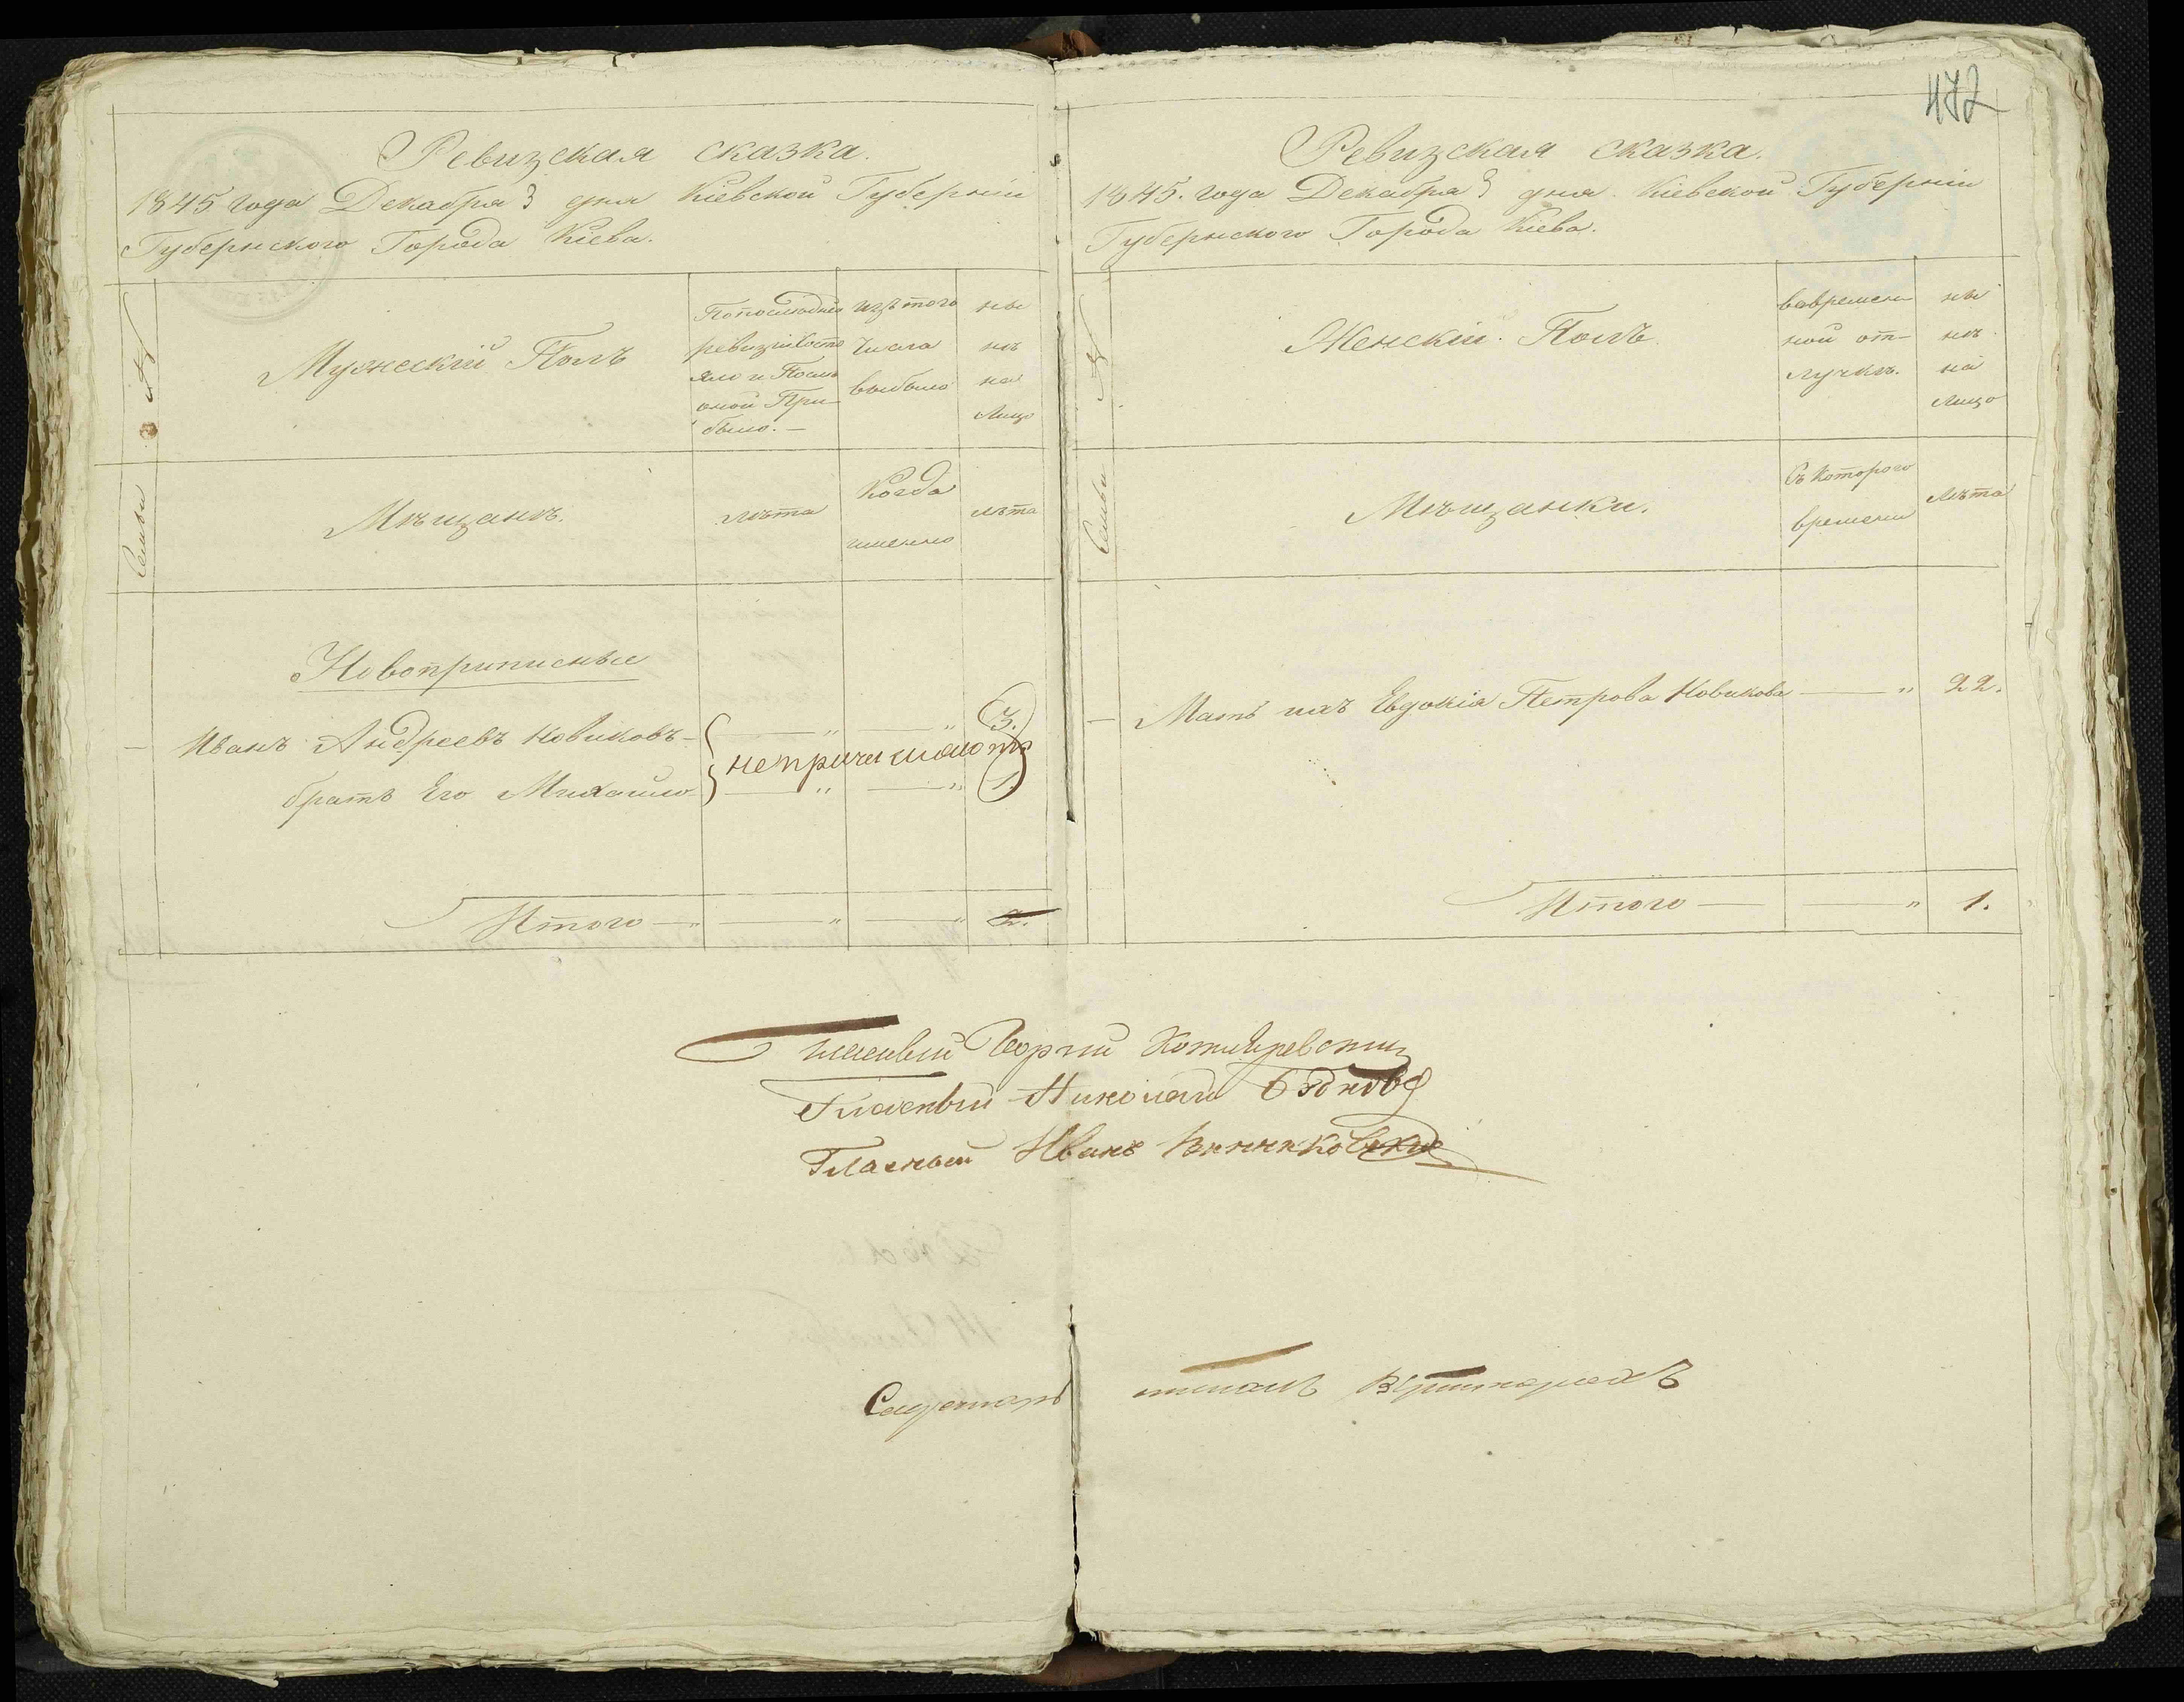 472
Ревизская сказка.
1845 года Декабря 3 дня Кіевской Губерніи
Губернского Города Кіева.
№
Семьи
Мужескій Полъ
По последней
ревизіи состо
яло и После
оной При-
было.—
изъ того
числа
выбыло
ны
нѣ
на
лицо
Мѣщанъ.
лѣта
Когда
именно
лѣта
Новоприписные
Иванъ Андреевъ Новиковъ — „ — „ 3.
непричисляютъ
братъ Его Михайло — „ — „ 1.
Итого — „ — „ — „ 2.
Ревизская сказка.
1845. года Декабря 3 дня Кіевской Губерніи
Губернского Города Кіева.
№
Семьи
Женскій Полъ
вовремен
ной от-
лучкѣ.
ны
нѣ
на
лицо
Мѣщанки.
Съ Которого
времени
Лѣта
Мать ихъ Евдокія Петрова Новикова — „ 22.
Итого — — „ 1.
Гласный Георгий Котляревский
Гласный Николай
Гласный Иванъ
Секретарь